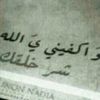 وٱكفني يَ الله
شر خلقك
JNON N'ADIA